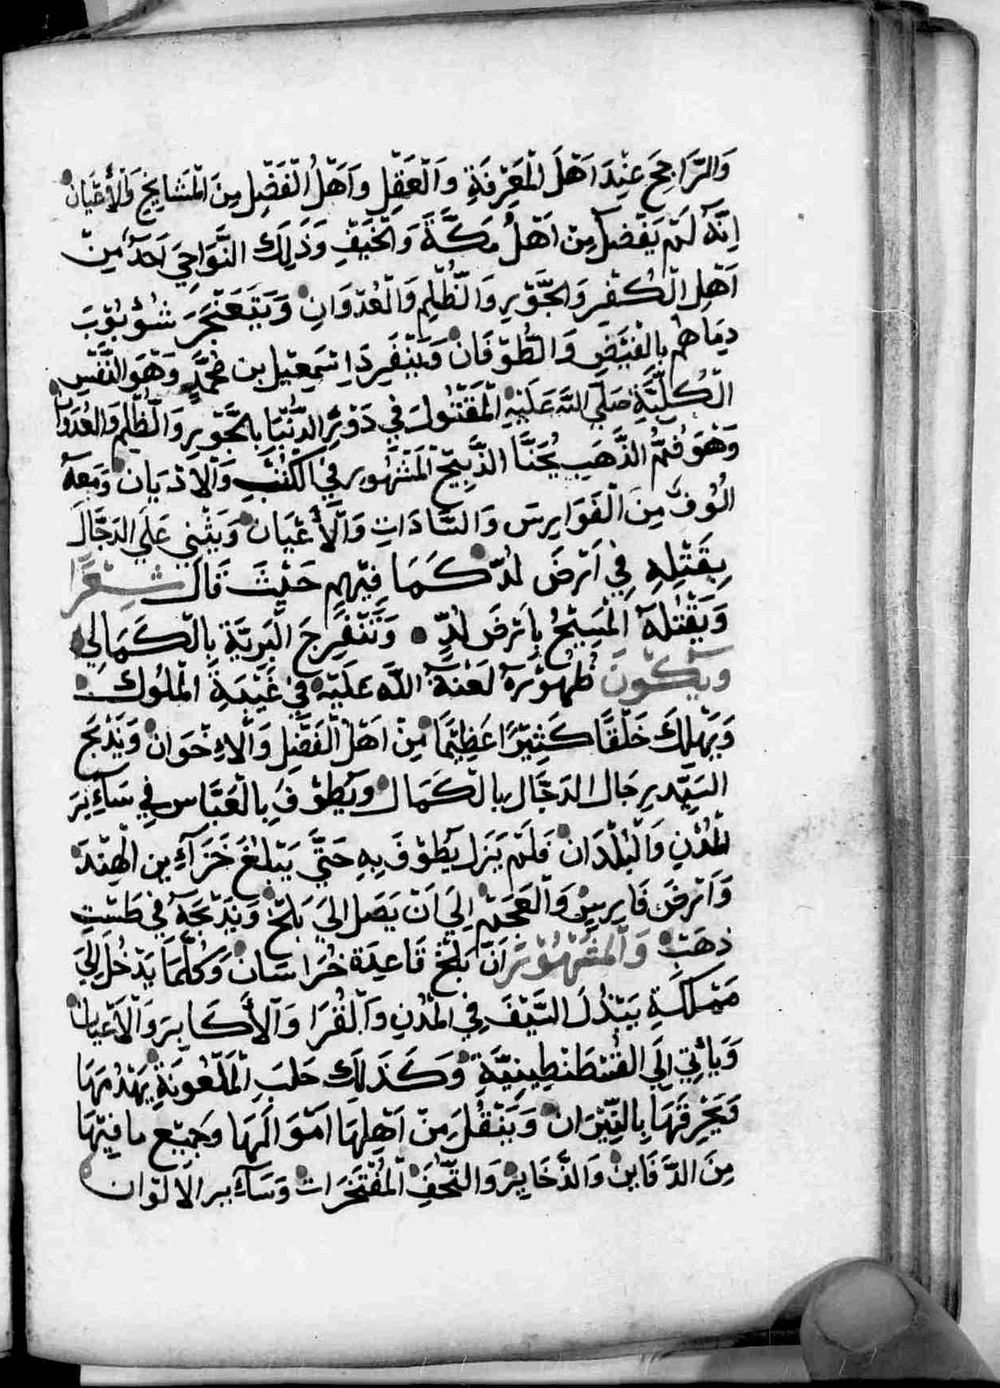 وَالرَّاجِحُ عِنْدَ اَهْلَ الْمَعْرِفَةِ وَالْعَقْلِ وَاَهْلُ الْفَضْلِ مِنَ الْمَشَايِخِ وَالْأَعْيَانْ
اِنَّهُ لَمْ يَفْضَلْ مِنْ اَهْلُ مَكَّةَ وَالْخَيْفِ وَذَلِكَ النَّوَاحِيَ اَحَدٌ مِنْ
اَهْلِ الْكُفْرِ وَالْجَوْرِ وَالظُّلْمِ وَالْعُدْوَانِ وَيَتَعَنْجَرَ شُؤْبُوْبَ
دِمَاهُمْ بِالْفَيْضِ وَالطُّوْفَانْ وَيَنْفَرِدَ اِسْمَعِيْل بِن مُحَمَّدٍ وَهْوَ النَّفْسِ
الْكُلِّيَّةِ صَلَّي اللَّهَ عَلَيْهِ الْمَقْتُولَ فِي دَوْرِ الدُّنْيَا بِالْجَوْرِ وَالظُّلْمِ وَالْعُدْوَانْ
وَهْوَ فُمُّ الذَّهَبِ يُحَنَّا الذَّبِيْحَ الْمَشْهُورِ فِيْ الكُتُبِ وَالْاَدْيَانْ وَمَعَهُ
اُلُوْفٌ مِنَ الْفَوَارِسَ وَالسَّادَاتِ وَالْأَعْيَانْ وَيَثْنِي عَلَي الدَجَّالَ
بِقَتْلِهِ فِيْ اَرْضَ لُدّْ كَمَا فِيْهِم حَيْثَ قَالَ شِعْرًا
وَيَقْتُلَهُ الْمَسِيْحُ بِاَرْضَ لُدٍّ وَتَنْفَرِجَ الْبَرِيَّةَ بِالْكَمَالِي
وَيَكُوْنَ ظُهُوْرَهُ لَعْنَةُ اللَّهِ عَلَيْهِ فِيْ غَيْبَةِ الْمُلُوكْ
وَيَهْلِكَ خَلْقًا كَثِيْرًا عَظِيْمًا مِنْ اَهْلُ الْفَضْلِ وَالْاِخْوَانْ وَيَذْبَحَ
السَيِّد رِجَال الدَجَّال بِالْكَمَالْ وَيُطُوْفَ بِالْعَبَّاس فِي سَآئِرَ
الْمُدُنِ وَالْبُلْدَانْ وَلَمْ يَزَل يَطُوْفَ بِهِ حَتَّي يَبْلُغَ جَزَآيِرِ الْهِنْدَ
وَاَرْضَ فَارِسْ وَالْعَجَمْ اِلَي اَنْ يَصَل اِلَيَ بَلْخْ وَيَذْبَحَهُ فِي طَسْتِ
ذَهَبْ وَالْمَشْهُوْرَ اَنَّ بَلْخَ قَاعِدَة خُرَاسَانْ وَكُلَّمَا يَدْخُلَ اِلَيَ
مَمْلَكَةِ يَبْذُلَ السَّيْفَ فِي الْمُدُنِ وَالْقُرَا وَالْأَكَابِرَ وَالْاَعْيَانْ
وَيَأْتِي اِلَي القُسْطَنْطِيْنِيَّةِ وَكَذَلِكَ حَلَبَ الْمَلْعُونَةِ يَهْدُمَهَا
وَيَحْرِقَهَا بِالنِّيْرَانْ وَيَنْقُلَ مِنْ اَهْلِهَا اَمْوَالَهَا وَجَمِيْعَ مَا فِيْهَا
مِنَ الدَّفَايِنْ وَالذَّخَايِرْ وَالتُّحَفِ الْمُفْتَخَرَاتْ وَسَآئِرِ الَالْوَانْ